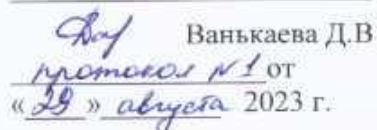 Ванькаева Д.В
протокол №1 от
«29» августа 2023 г.